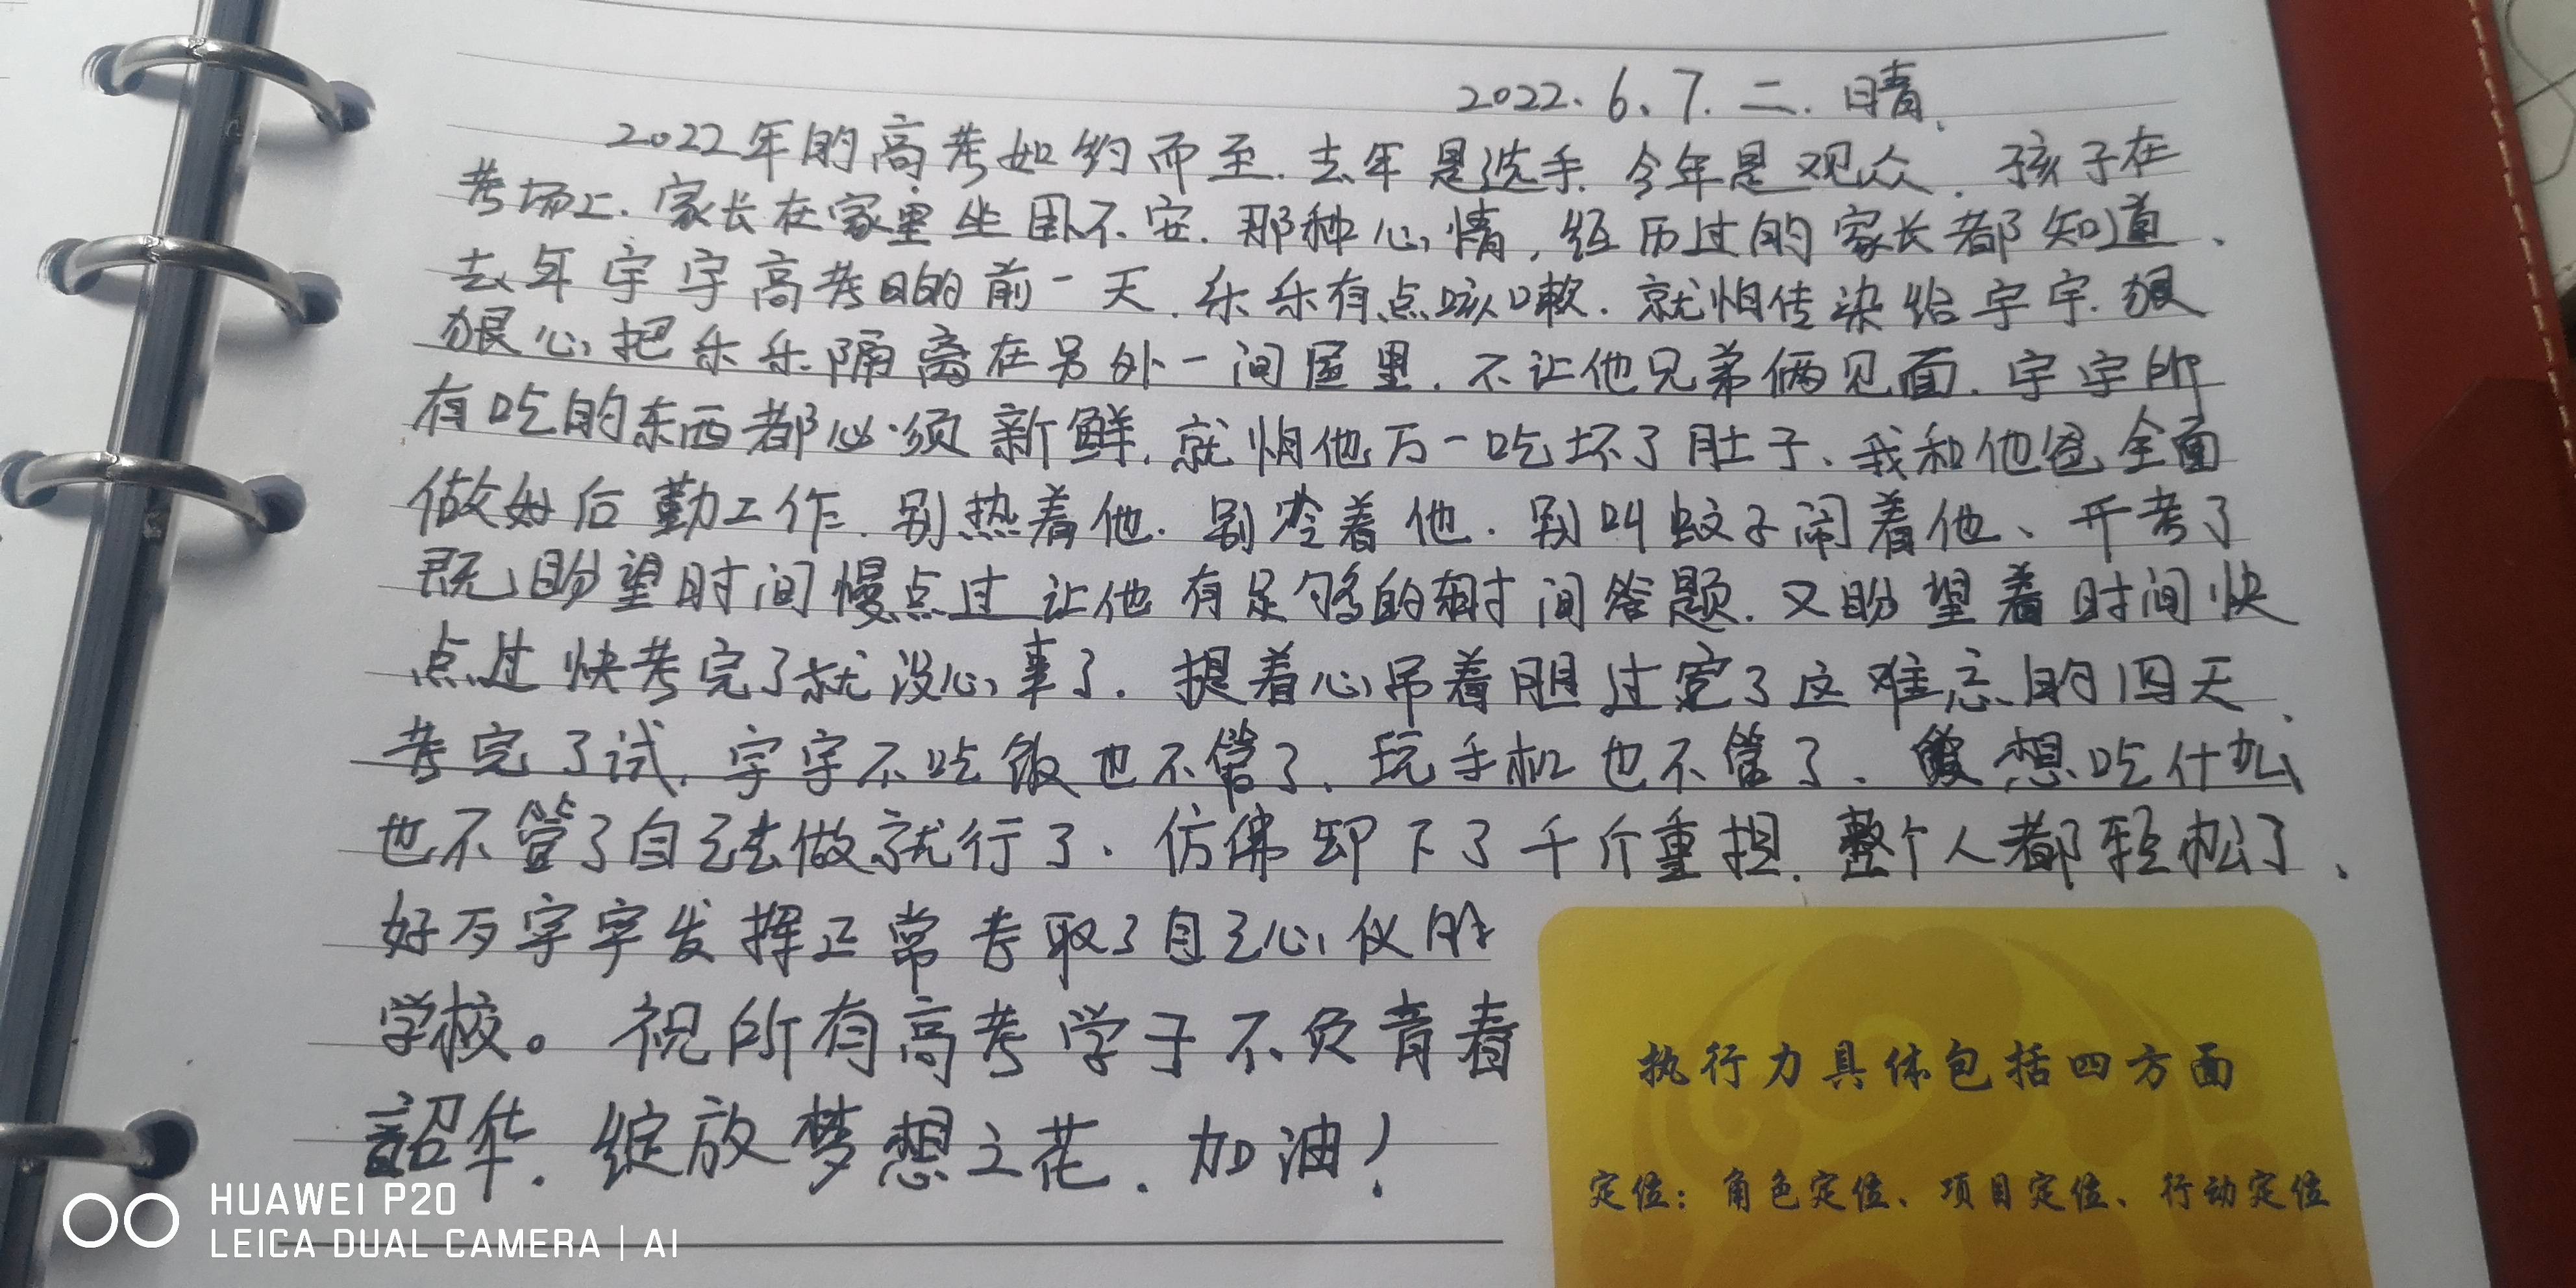 2022.6.7.二.晴.
2022年的高考如约而至.去年是选手.今年是观众.孩子在
考场上.家长在家里坐卧不安.那种心情,经历过的家长都知道、
去年宇宇高考的前一天.乐乐有点咳嗽.就怕传染给宇宇.狠
狠心把乐乐隔离在另外一间屋里.不让他兄弟俩见面.宇宇所
有吃的东西都必须新鲜.就怕他万一吃坏了肚子、我和他爸全面
做好后勤工作.别热着他.别冷着他.别叫蚊子闹着他、开考了
既盼望时间慢点过让他有足够的时间答题.又盼望着时间快
点过快考完了就没心事了.提着心吊着胆过完了这难忘的四天、
考完了试.宇宇不吃饭也不管了.玩手机也不管了、想吃什么
也不管了自己去做就行了.仿佛卸下了千斤重担.整个人都轻松了、
好歹宇宇发挥正常考取了自己心仪的
学校。祝所有高考学子不负青春
韶华.绽放梦想之花.加油!
执行力具体包括四方面
定位：角色定位、项目定位、行动定位
HUAWEI P20
LEICA DUAL CAMERA | AI